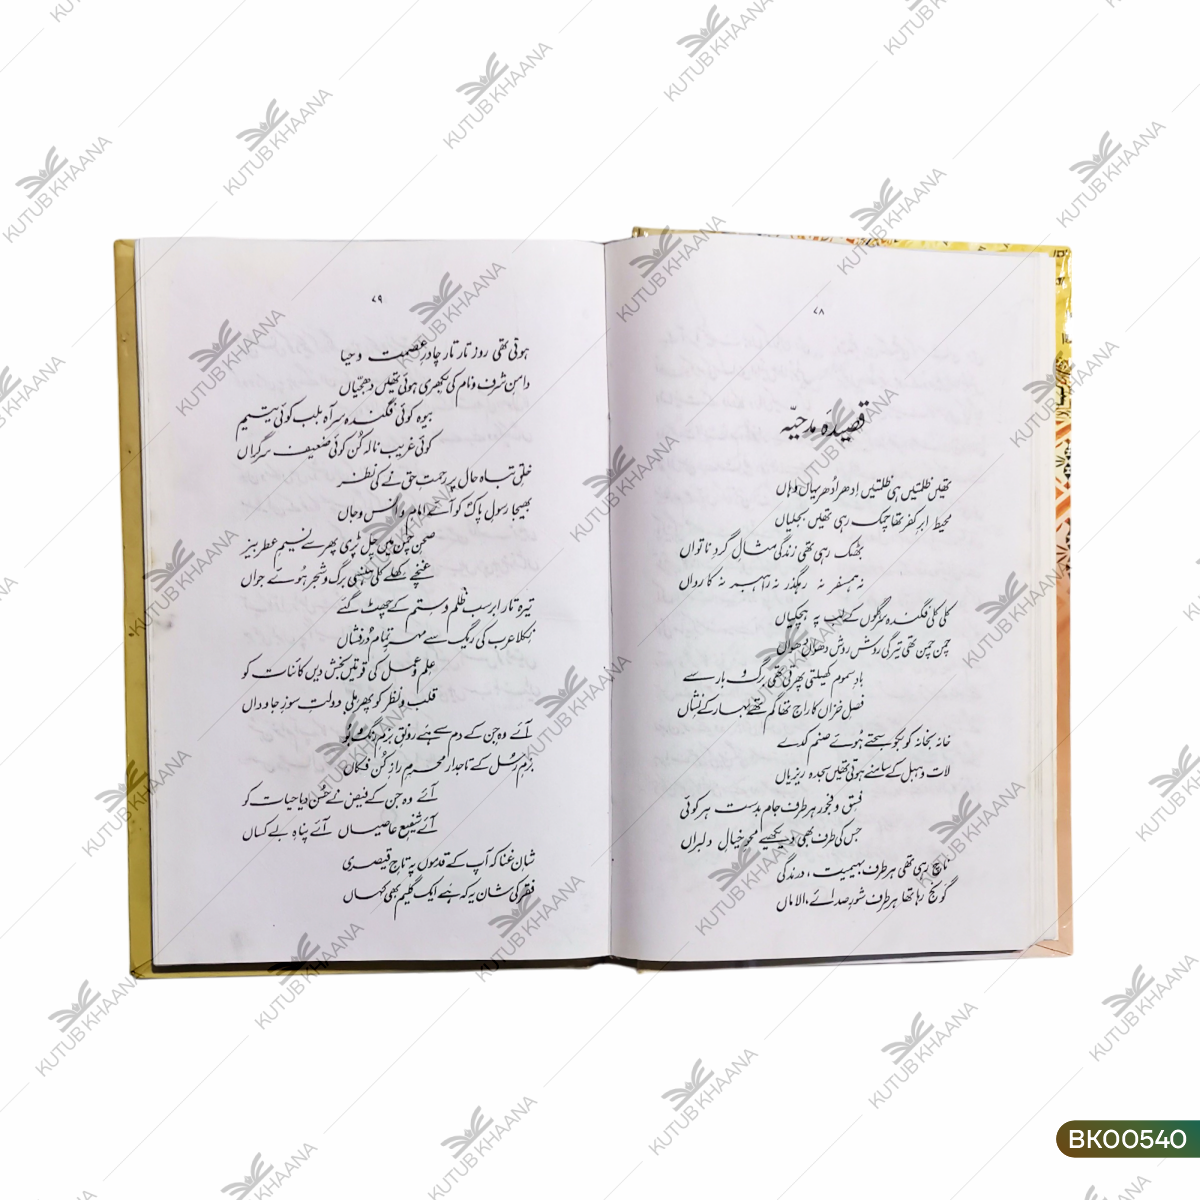 ۷۸
قصیدۂ مدحیّہ
تھیں ظلمتیں ہی ظلمتیں اِدھر اُدھر یہاں وہاں
محیط ابرِ کفر تھا چمک رہی تھیں بجلیاں
بھٹک رہی تھی زندگی مثالِ گردِ ناتواں
نہ ہمسفر نہ رہگذر نہ راہبر نہ کارواں
کلی کلی فگندہ سرگلوں کے لب پہ ہچکیاں
چمن چمن تھی تیرگی روش روش دھواں دھواں
بادِ سموم کھیلتی پھرتی تھی برگ و بار سے
فصلِ خزاں کا راج تھا گم تھے بہار کے نشاں
خانہ بخانہ کو بکو سجتے ہوئے صنم کدے
لات و ہبل کے سامنے ہوتی تھیں سجدہ ریزیاں
فسق و فجور ہر طرف جام بدست ہر کوئی
جس کی طرف بھی دیکھیے محوِ خیالِ دلبراں
ناچ رہی تھی ہر طرف بہیمیت، درندگی
گونج رہا تھا ہر طرف شورِ صدائے الاماں
۷۹
ہوتی تھی روز تار تار چادرِ عصمت و حیا
دامنِ شرف و نام کی بکھری ہوئی تھیں دھجیاں
بیوہ کوئی فگندہ سر آہ بلب کوئی یتیم
کوئی غریب نالہ کُن کوئی ضعیف سرگراں
خلقِ تباہ حال پر رحمتِ حق نے کی نظر
بھیجا رسولِ پاکؐ کو آئے امامِ انس و جاں
صحنِ چمن میں چل پڑی پھر سے نسیمِ عطر بیز
غنچے کھلے کلی ہنسی برگ و شجر ہوئے جواں
تیرہ تار ابر سب ظلم و ستم کے چھٹ گئے
نکلا عرب کی ریگ سے مہرِ تمام دُرفشاں
علم و عمل کی قوتیں بخش دیں کائنات کو
قلب و نظر کو پھر ملی دولتِ سوزِ جاوداں
آئے وہ جن کے دم سے ہے رونقِ بزمِ رنگ و بو
بزمِ رسل کے تاجدار محرمِ رازِ کُن فکاں
آئے وہ جن کے فیض نے حُسن دیا حیات کو
آئے شفیعِ عاصیاں آئے پناہِ بے کساں
شانِ غنا کہ آپ کے قدموں پہ تاجِ قیصری
فقر کی شان یہ کہ ہے ایک گلیم بھی کہاں
KUTUB KHAANA
BK00540